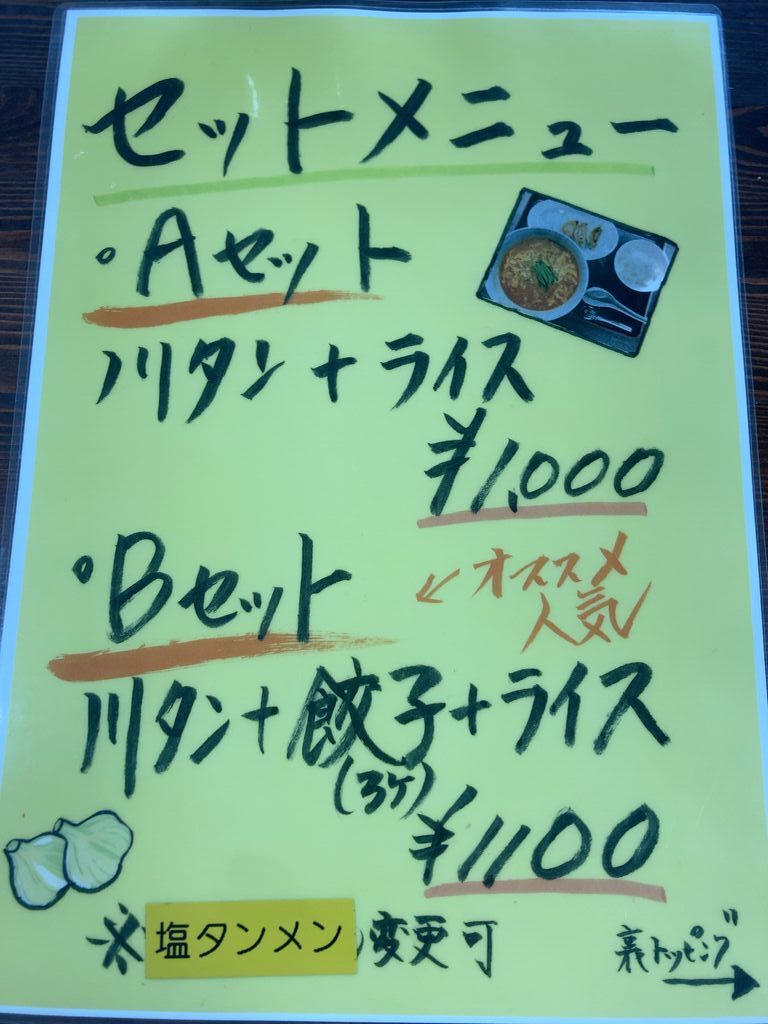 セットメニュー
。Aセット
川タン+ライス
¥1,000
。Bセット
←オススメ
人気
川タン+餃子+ライス
(3ケ)
¥1100
※塩タンメン 変更可
裏トッピング
→